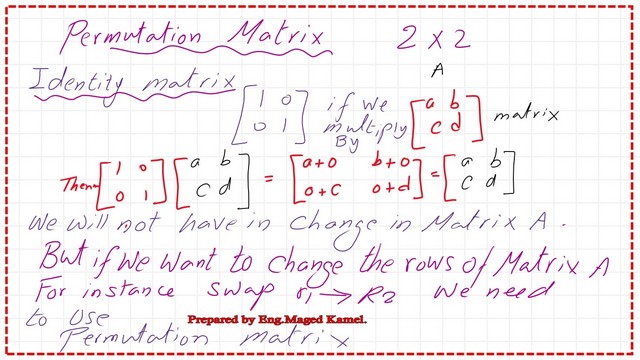 Permutation Matrix 2 x 2
A
Identity matrix
[1 0
0 1] if we multiply By [a b
c d] matrix
Then [1 0
0 1] [a b
c d] = [a+0 b+0
0+c 0+d] = [a b
c d]
We will not have in change in Matrix A.
But if We Want to change the rows of Matrix A
For instance swap r1 → R2 We need
to Use
Prepared by Eng.Maged Kamel.
Permutation matrix